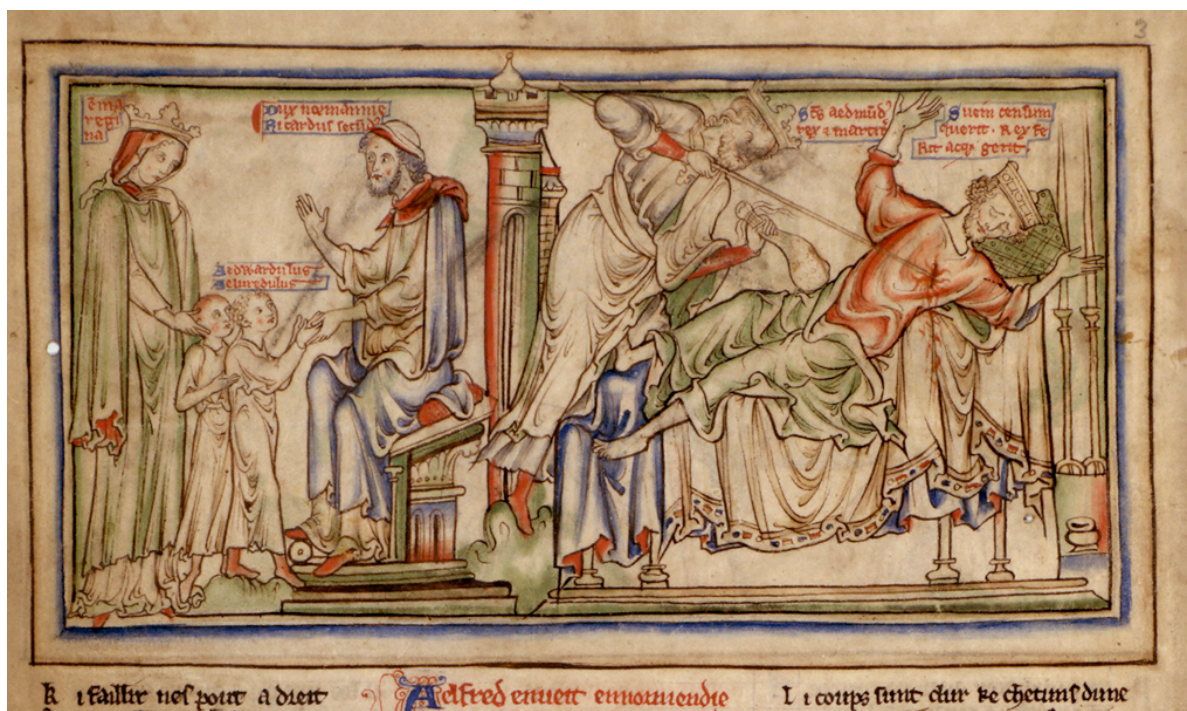 3
Ema
regi
na
Dux normannie
Ricardus secund'
Aedwardulus
Aeluredulus
S̄c̄s aedmūd'
rex ⁊ martir
Suein censum
querit. Rex fe
rit
gerit.
K i faillir nes pout a dreit
Aelfred enueit ennormendie
L i coups sunt dur ke chetuns dune